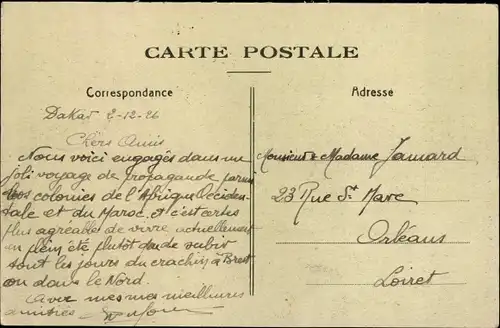 CARTE POSTALE
Correspondance
Dakar 2-12-26
Chers Amis
Nous voici engagés dans un
joli voyage de propagande parmi
les colonies de l'Afrique Occiden-
tale et du Maroc. et c'est certes
plus agreable de vivre actuellement
en plein été plutôt de subir
tout les jours du crachin à Brest
ou dans le Nord.
Avec mes meilleures
amitiés
Adresse
Monsieur & Madame Jamard
23 Rue St Marc
Orléans
Loiret